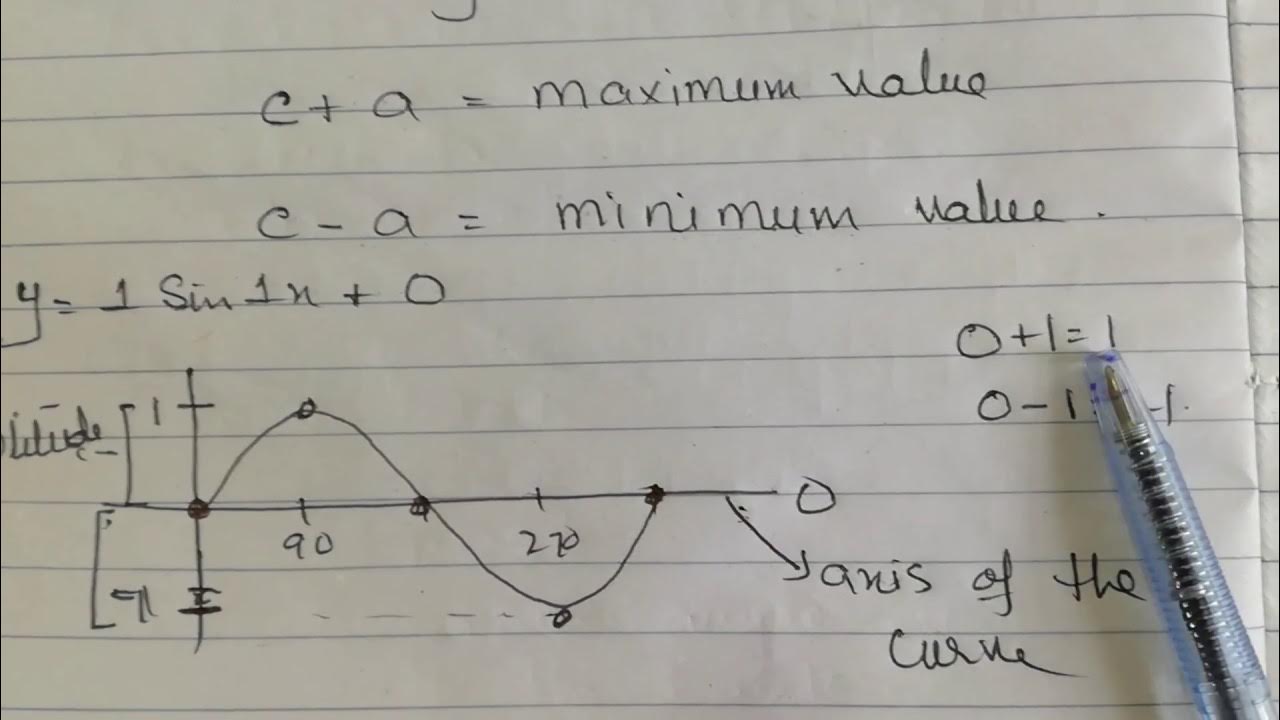 c + a = maximum value
c - a = minimum value.
y = 1 Sin 1x + 0
0 + 1 = 1
0 - 1 -1.
1
0
90
270
-1
axis of the
curve